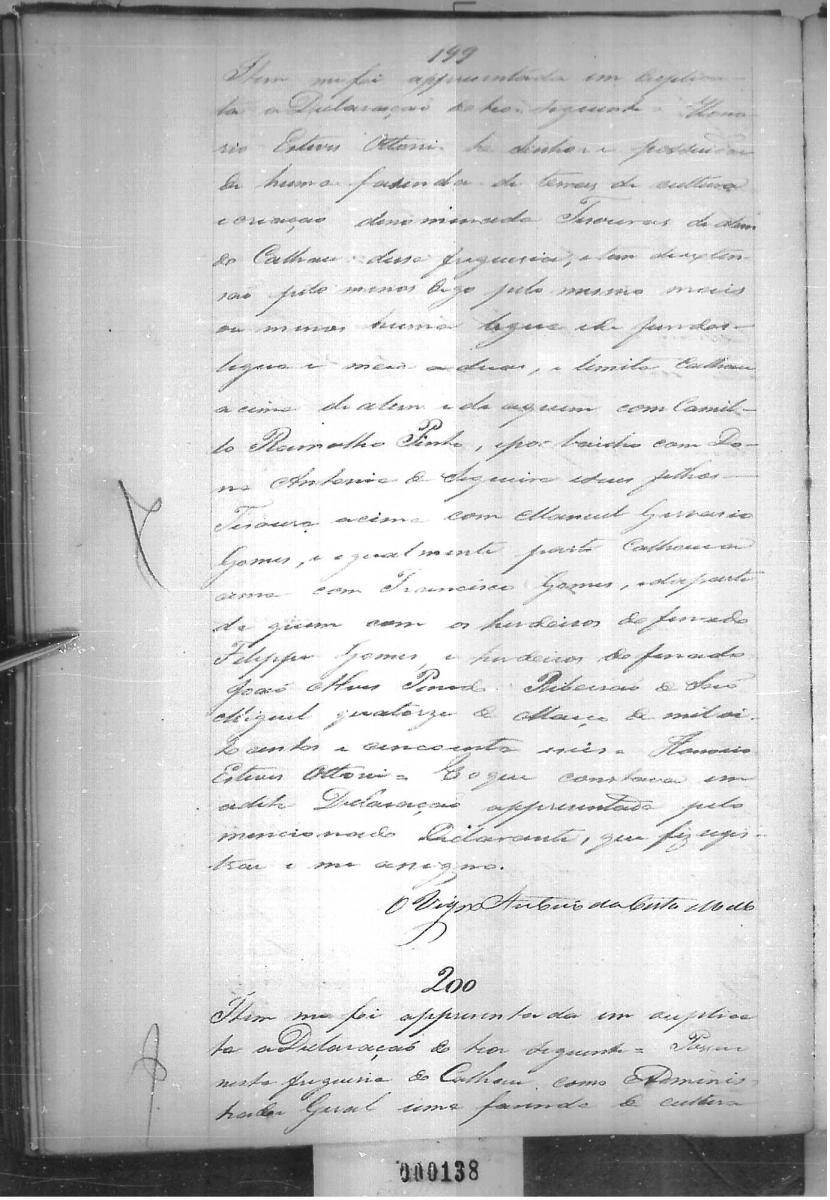 199
Item me foi appresentada em duplica-
ta a Declaração do teor seguinte = Hono-
rio Esteves Ottoni he senhor e possuidor
de huma fazenda de terras de cultura
e criação denominada Tesouras de alem
do Calhau desse freguesia, e tem de exten-
são pelo menos digo pelo mesmo mais
ou menos huma legua e de fundos-
legua e meia a duas, e limita Calhau
acima de alem e de aquem com Camil-
lo Ramalho Pinto, e por baicho com Do-
na Antonia de Siqueira e seus filhos-
Tesoura acima com Manuel Gervasio
Gomes, e igualmente parte Calhau a
cima com Francisco Gomes, e da parte
de quem com os herdeiros do finado
Filippe Gomes, e herdeiros do finado
João Alves Pinto. Ribeirão de São
Miguel quatorze de Março de mil oi-
tocentos e cincoenta e seis = Honorio
Esteves Ottoni = E o que constava em
a dita Declaração appresentada pelo
mencionado Declarante, que fiz regis-
trar e me assigno.
O Vigro Antonio da Costa Mello
200
Item me foi appresentada em duplica
ta a Declaração do teor seguinte = Possue
nesta freguesia do Calhau, como Adminis-
trador Geral uma fazenda de cultura
000138